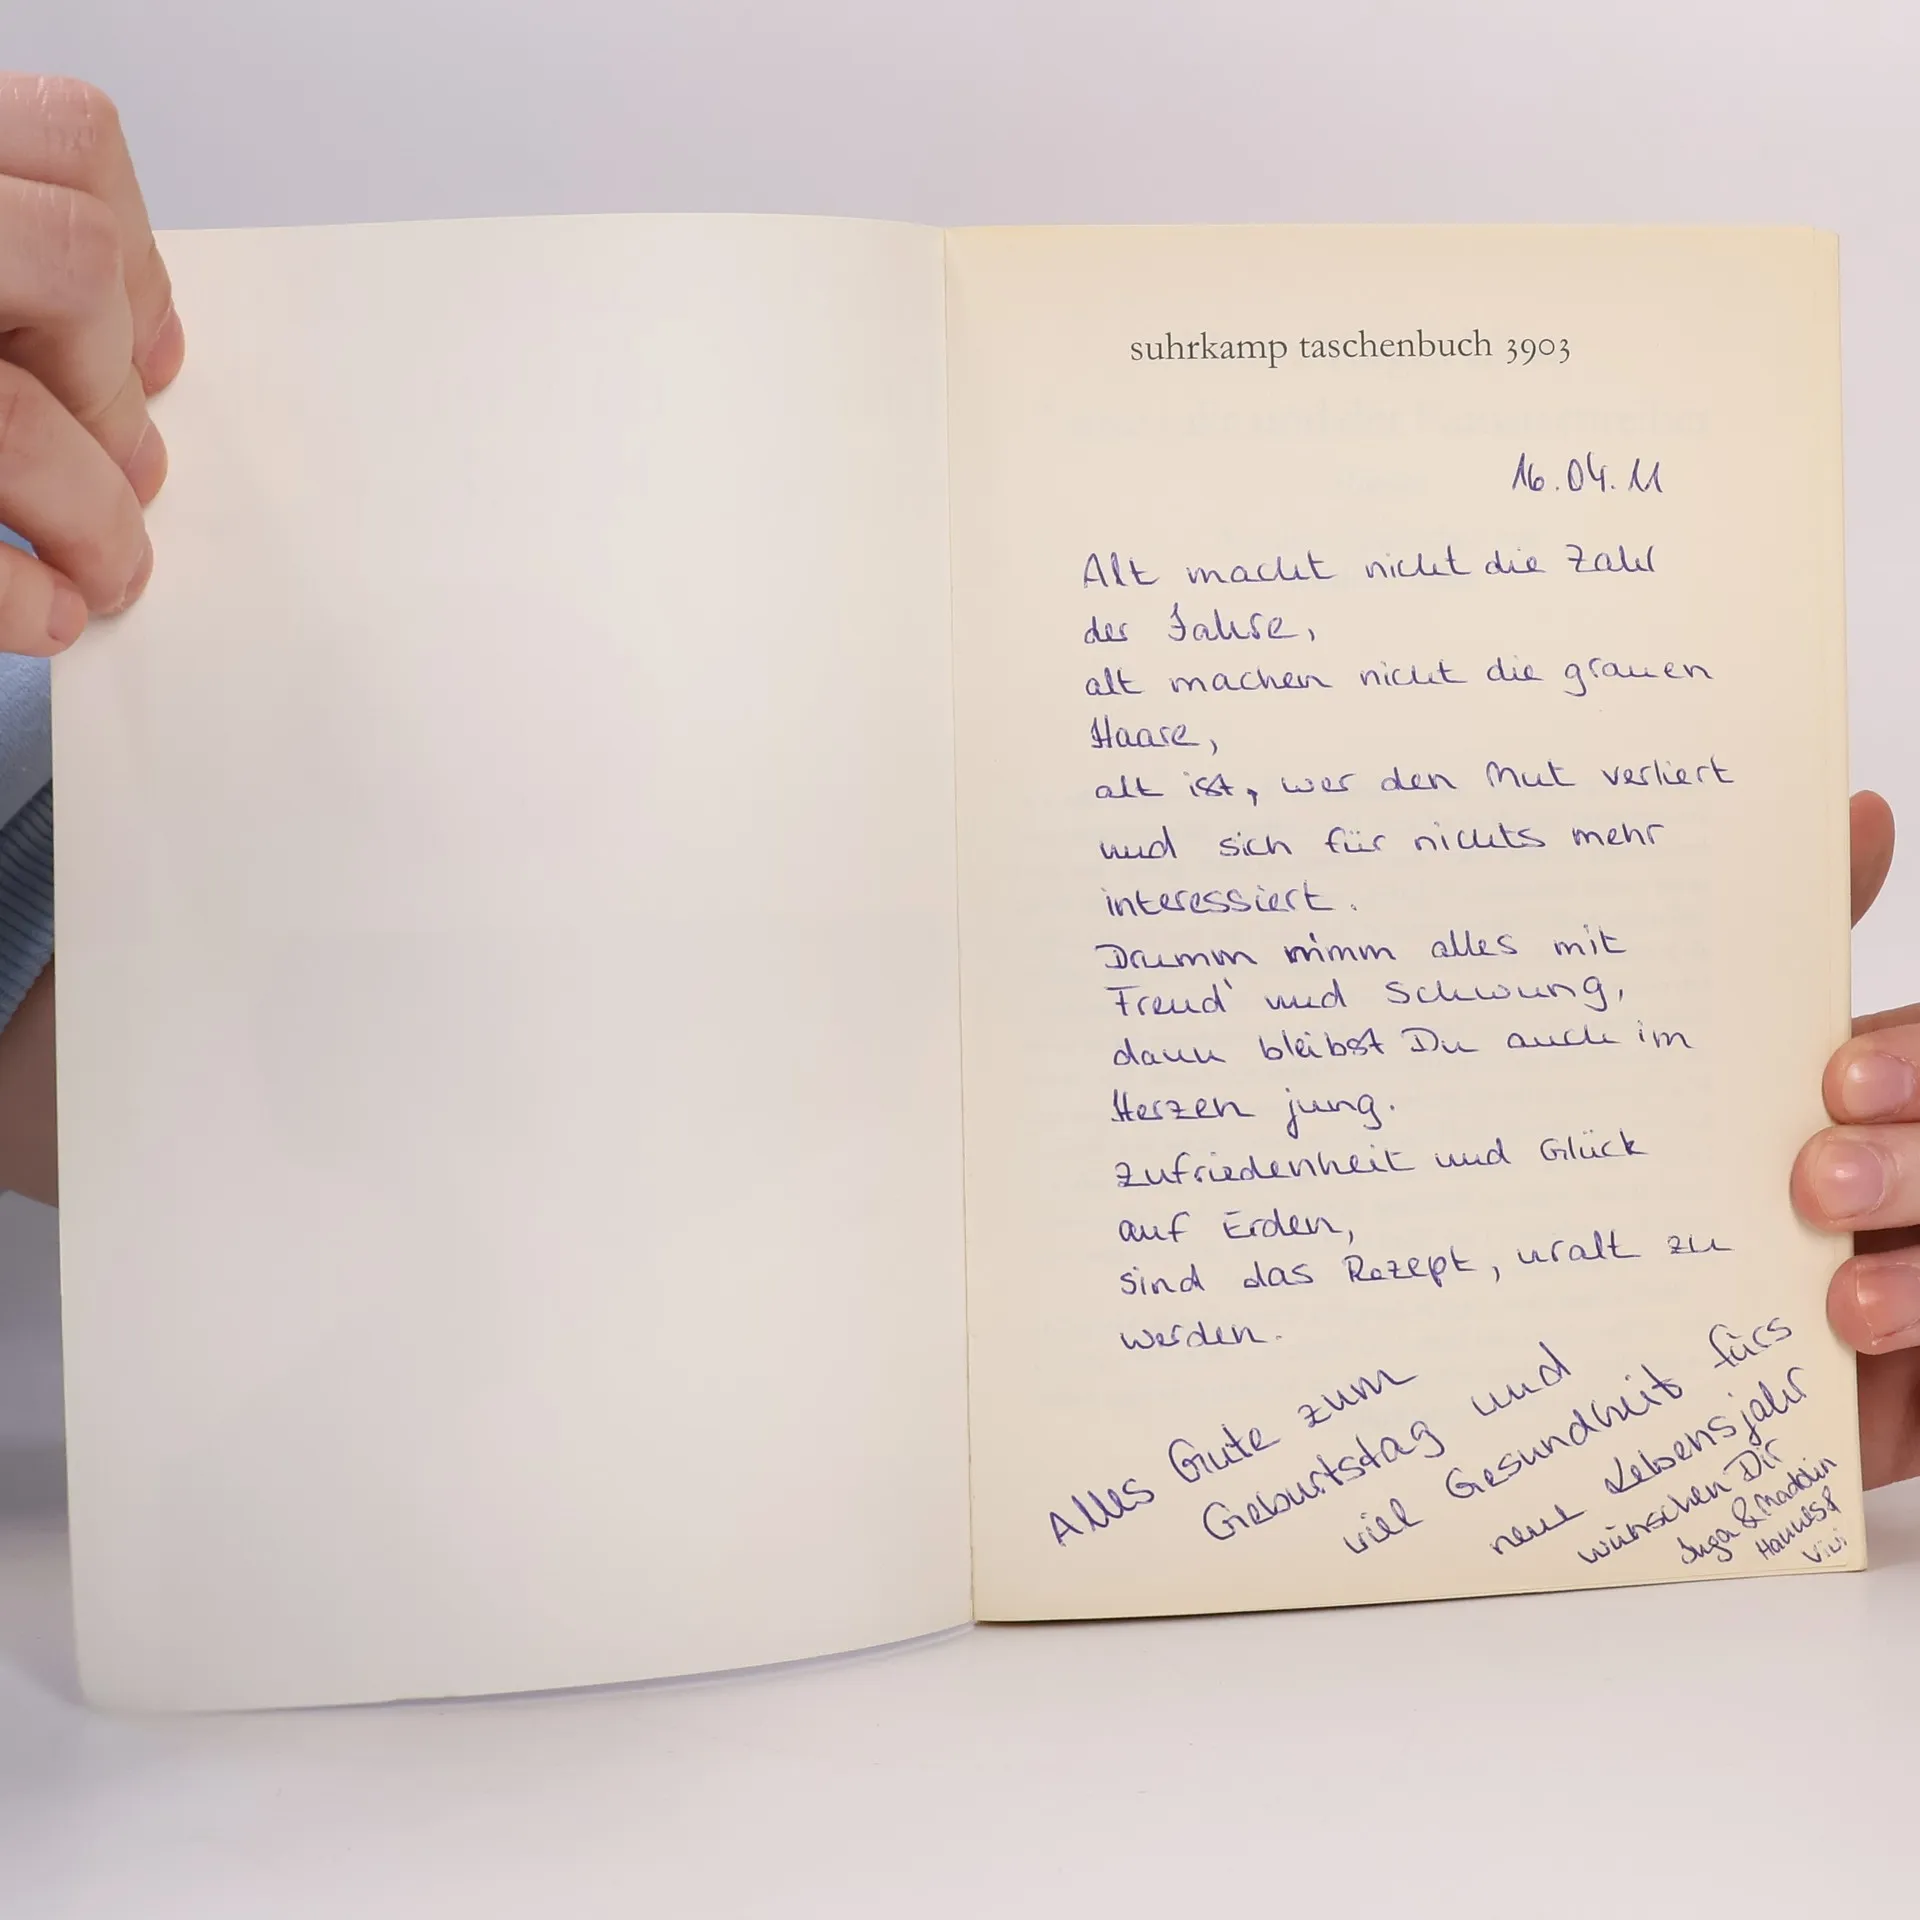 suhrkamp taschenbuch 3903
16.04.11
Alt macht nicht die Zahl
der Jahre,
alt machen nicht die grauen
Haare,
alt ist, wer den Mut verliert
und sich für nichts mehr
interessiert.
Drumm nimm alles mit
Freud' und Schwung,
dann bleibst Du auch im
Herzen jung.
Zufriedenheit und Glück
auf Erden,
sind das Rezept, uralt zu
werden.
Alles Gute zum
Geburtstag und
viel Gesundheit fürs
neue Lebensjahr
wünschen Dir
Inga &
Hannes &
Vivi